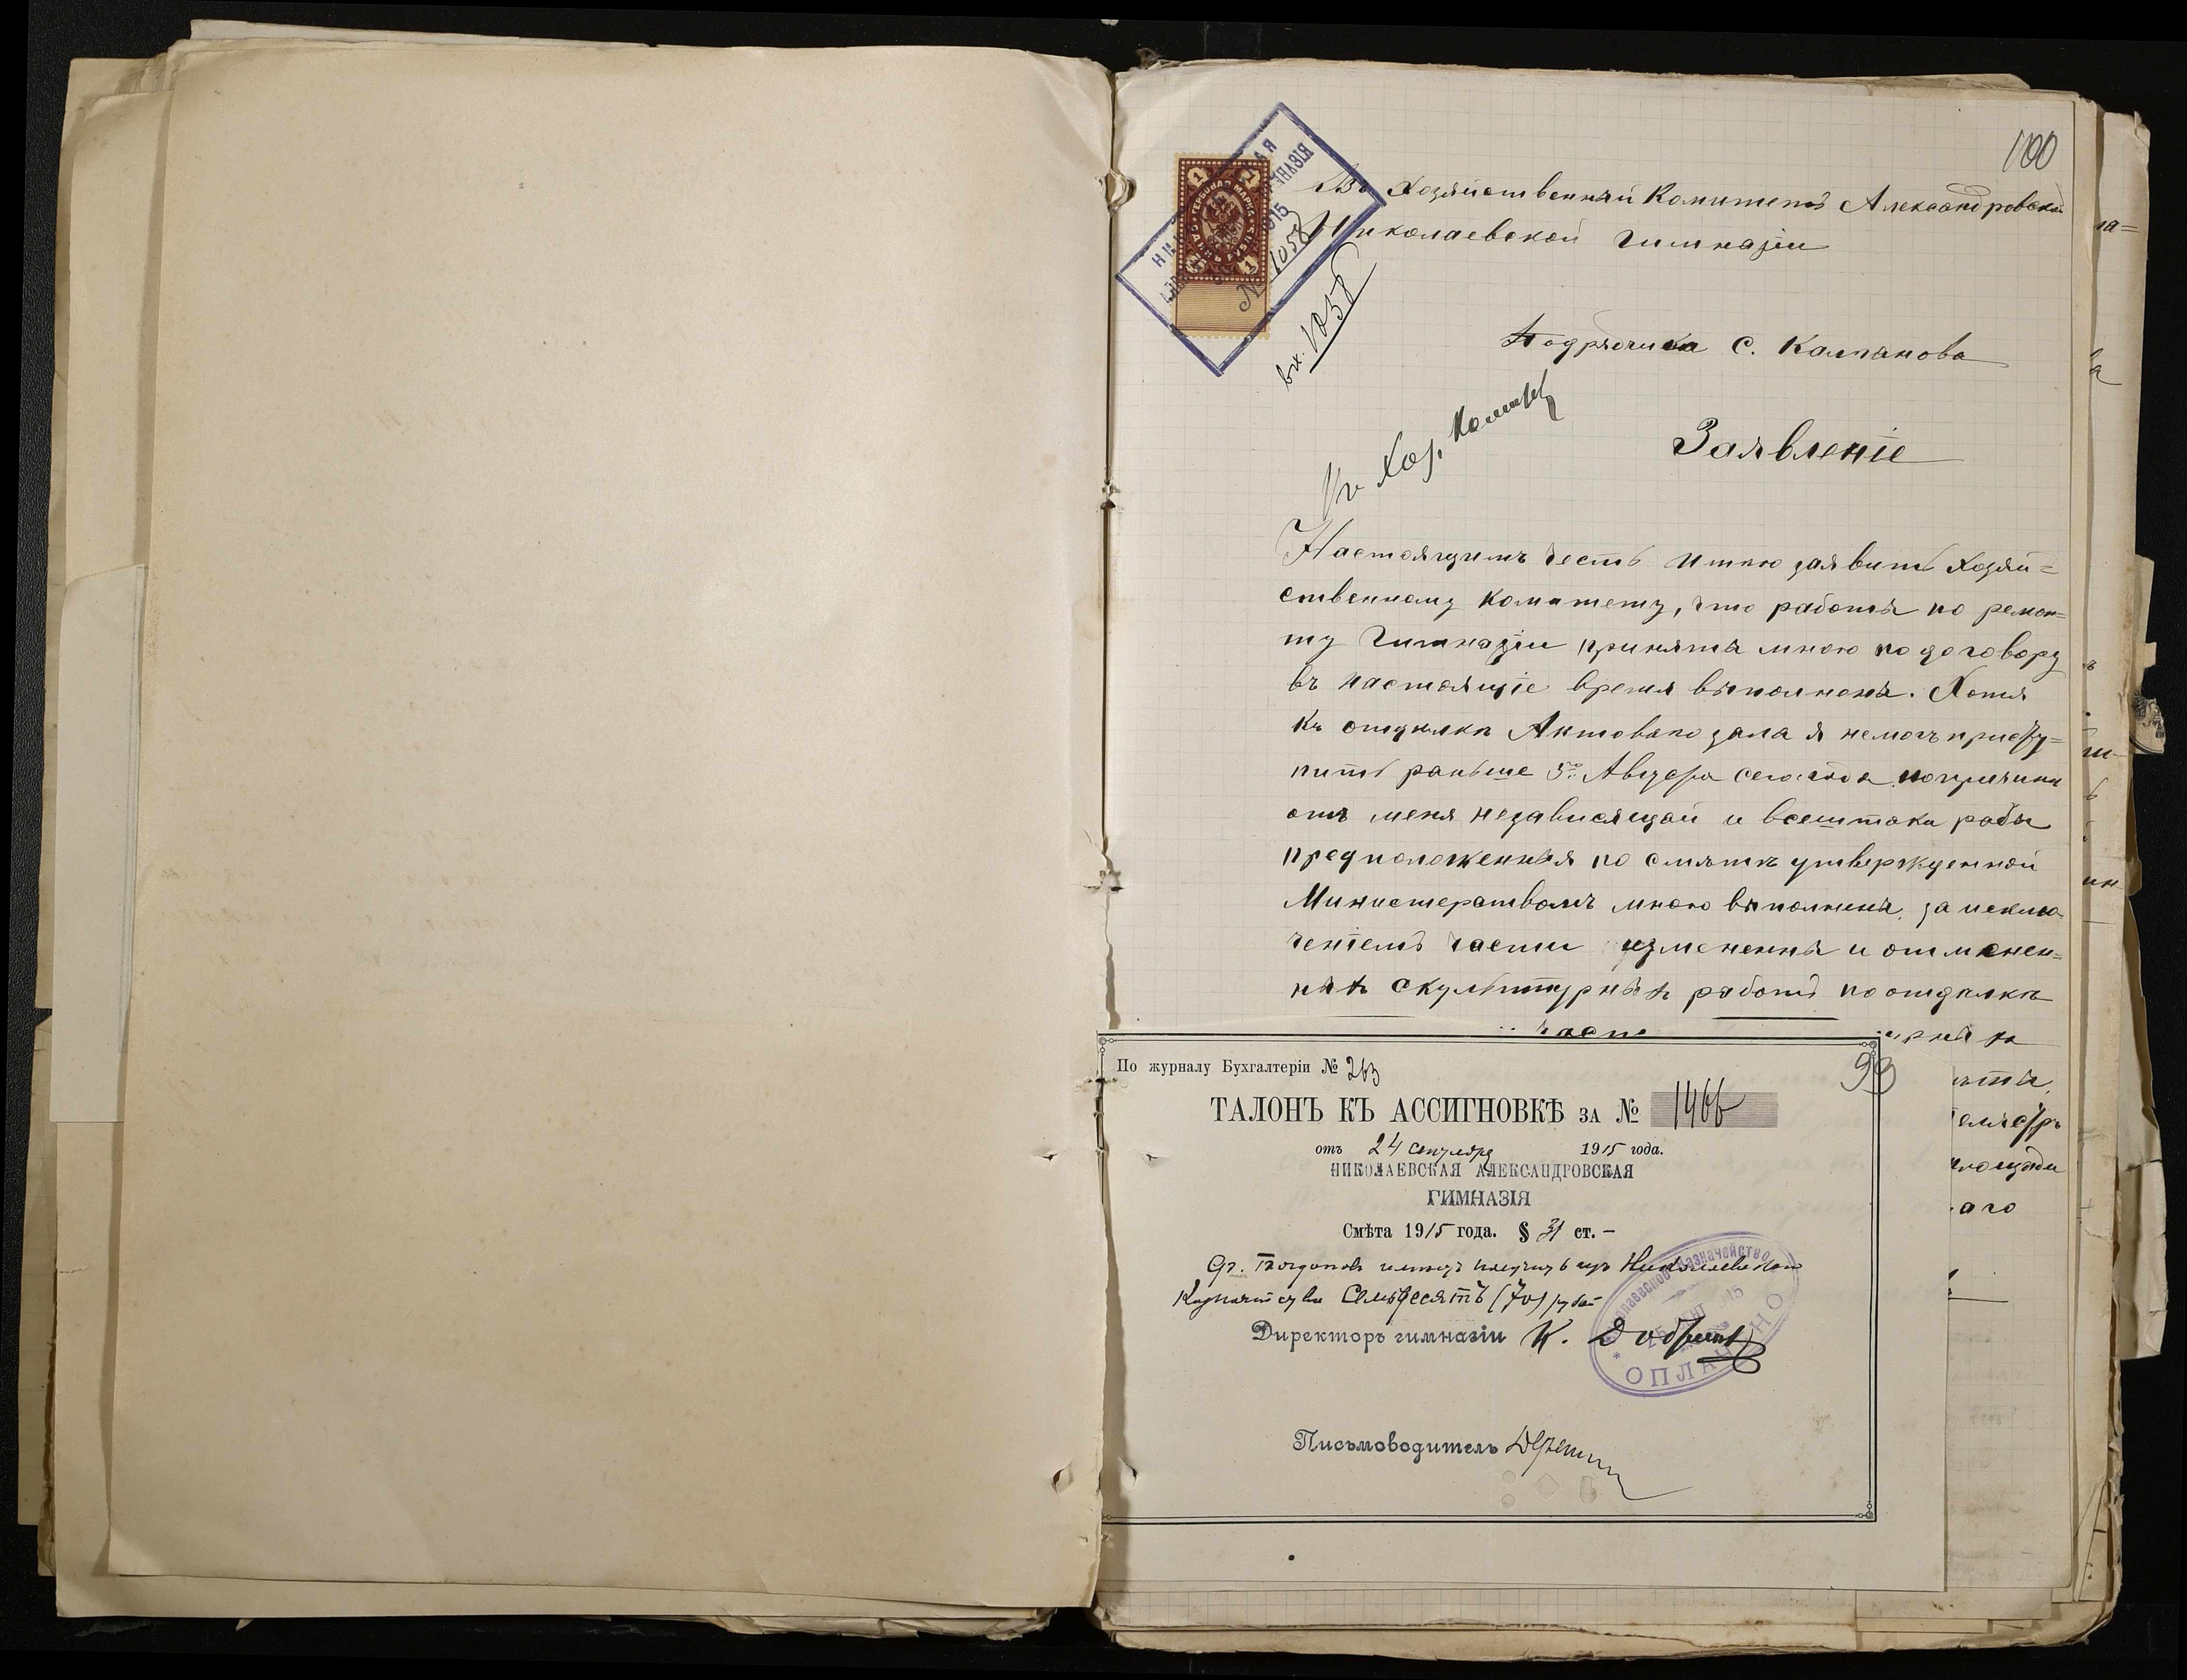 100
Въ Хозяйственный Комитетъ Александровской
Николаевской Гимназiи
№ 1058
вх. 1058
Подрядчика С. Калпанова
Въ Хоз. Комит
Заявленiе
Настоящимъ честь имѣю заявить Хозяй=
ственному Комитету, что работы по ремон=
ту Гимназiи приняты мною по договору
въ настоящiе время выполнены. Хотя
къ отдѣлкѣ Актоваго зала я немогъ присту=
пить раньше 5го Августа сего года попричинѣ
отъ меня независящей и всештаки работы
предположенныя по смѣтѣ утвержденной
Министерствомъ мною выполнены, за исклю-
ченiемъ части измененны и отменен=
ныхъ скульптурныхъ работъ по отдѣлкѣ
части
По журналу Бухгалтерiи № 263
99
ТАЛОНЪ КЪ АССИГНОВКѢ ЗА № 1466
отъ 24 сентября 1915 года.
НИКОЛАЕВСКАЯ АЛЕКСАНДРОВСКАЯ
ГИМНАЗIЯ
Смѣта 1915 года. § 31 ст. –
имѣетъ получить изъ Николаевскаго
Казначейства Семьдесятъ (70) рублей
Директоръ гимназiи К.
ОПЛАЧЕНО
Письмоводитель
аго